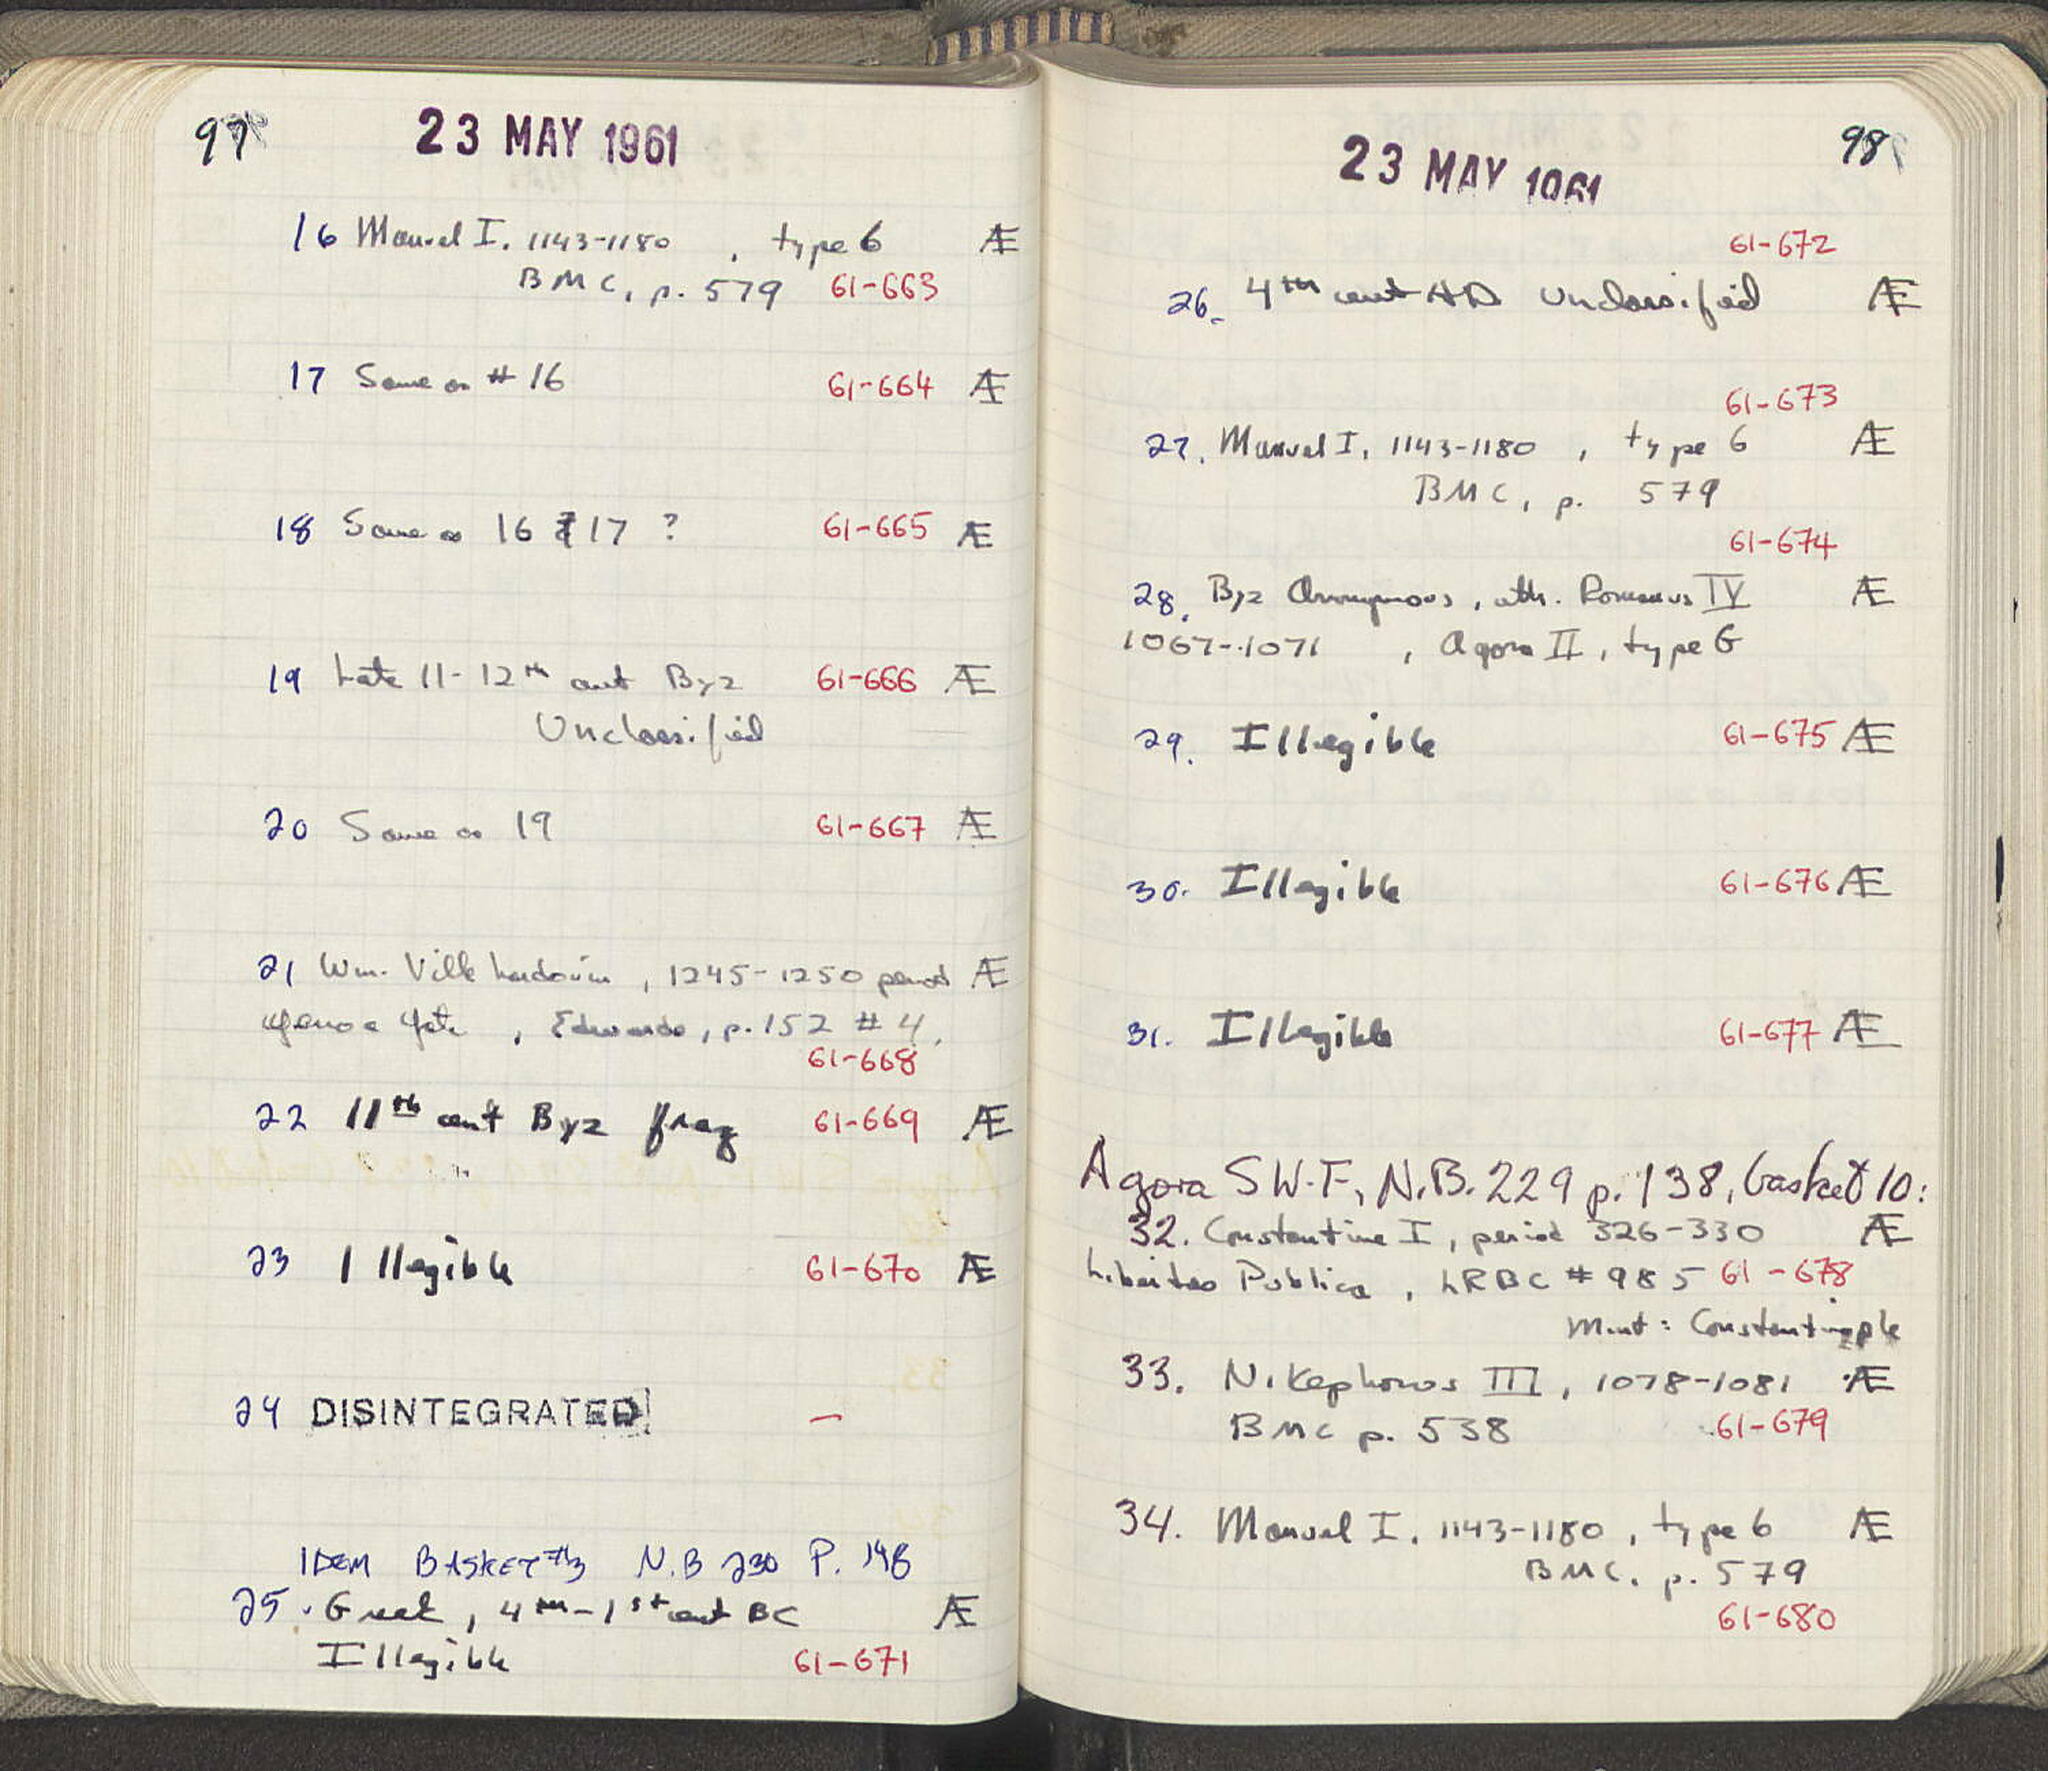 97
23 MAY 1961
16 Manuel I. 1143-1180 , type 6 Æ
BMC, p. 579 61-663
17 Same as # 16 61-664 Æ
18 Same as 16 & 17 ? 61-665 Æ
19 Late 11-12th cent Byz 61-666 Æ
Unclassified
20 Same as 19 61-667 Æ
21 Wm. Villehardouin, 1245-1250 period Æ
Genoa Gate, Edwards, p. 152 # 4.
61-668
22 11th cent Byz frag 61-669 Æ
23 Illegible 61-670 Æ
24 DISINTEGRATED —
IDEM BASKET #3 N.B 230 P. 148
25. Greek, 4th-1st cent BC Æ
Illegible 61-671
98
23 MAY 1961
61-672
26. 4th cent AD Unclassified Æ
61-673
27. Manuel I, 1143-1180 , type 6 Æ
BMC, p. 579
61-674
28. Byz Anonymous, attr. Romanus IV Æ
1067-1071 , Agora II, type G
29. Illegible 61-675 Æ
30. Illegible 61-676 Æ
31. Illegible 61-677 Æ
Agora SW.F, N.B. 229 p. 138, basket 10:
32. Constantine I, period 326-330 Æ
Libertas Publica, LRBC # 985 61-678
Mint: Constantinople
33. Nikephorus III, 1078-1081 Æ
BMC p. 538 61-679
34. Manuel I. 1143-1180, type 6 Æ
BMC. p. 579
61-680